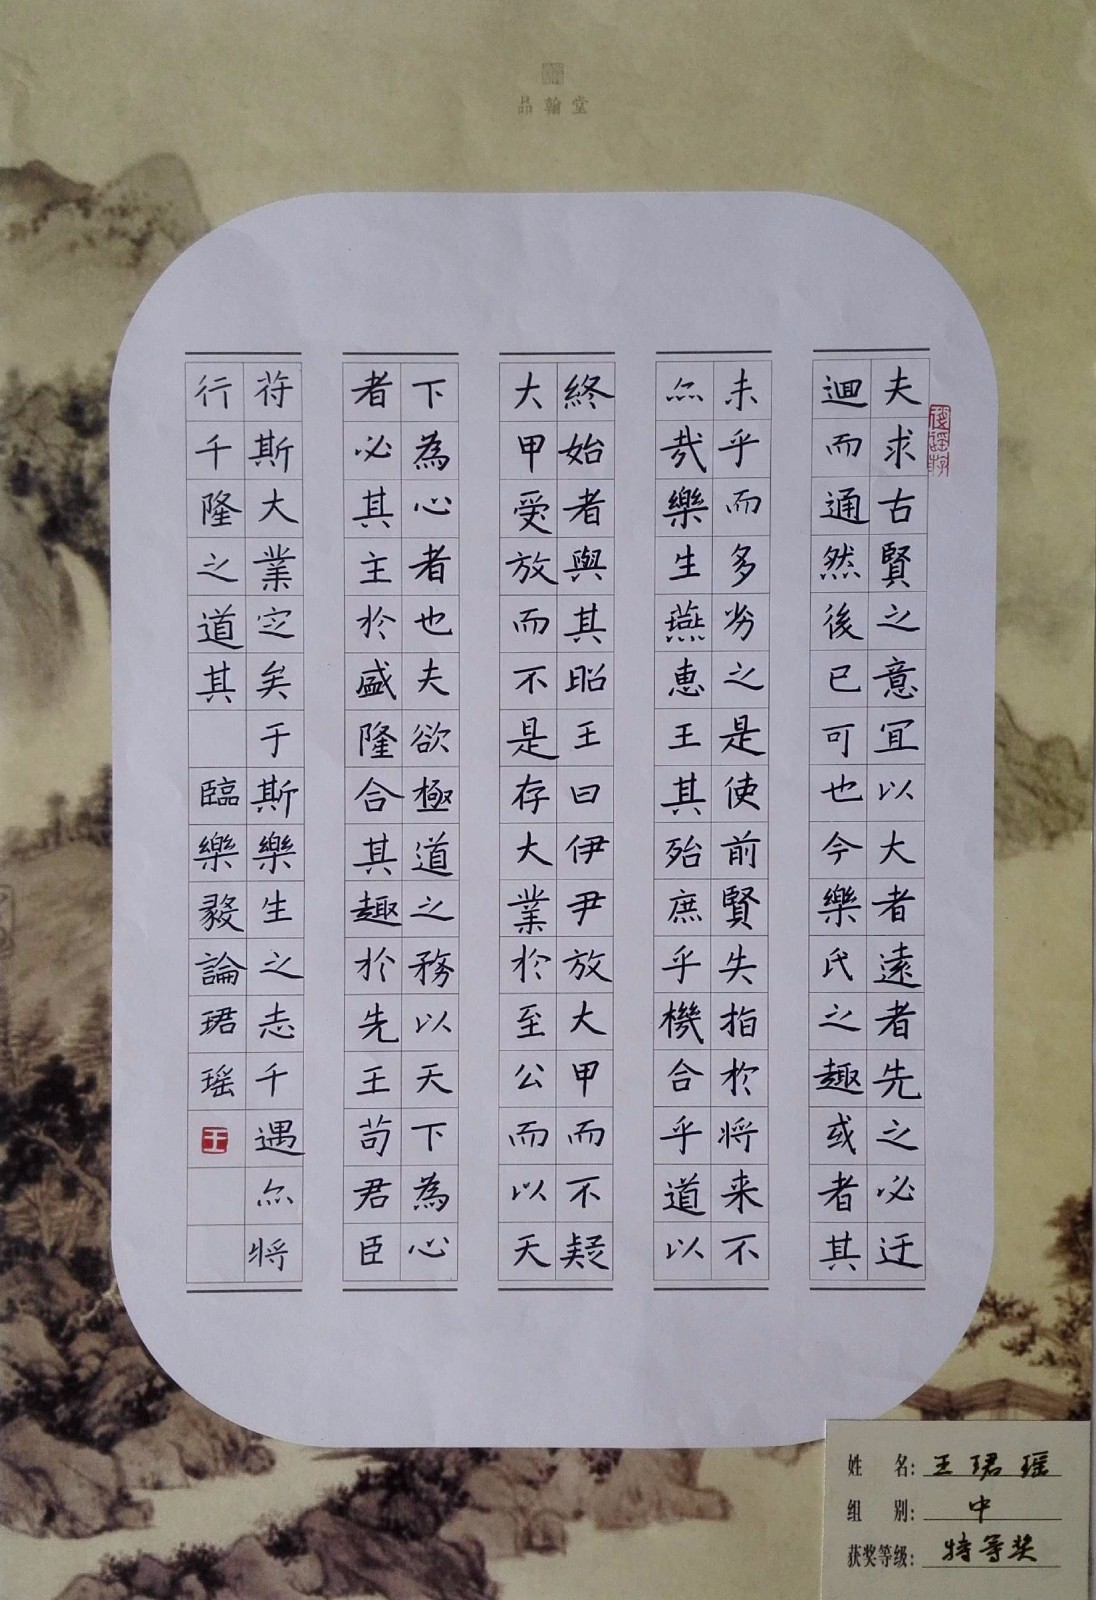 品翰堂
夫求古賢之意宜以大者遠者先之必迂
迴而通然後已可也今樂氏之趣或者其
未乎而多劣之是使前賢失指於将来不
尒㦲樂生燕惠王其殆庶乎機合乎道以
終始者與其昭王曰伊尹放大甲而不疑
大甲受放而不是存大業於至公而以天
下為心者也夫欲極道之務以天下為心
者必其主於盛隆合其趣於先王苟君臣
苻斯大業定矣于斯樂生之志千遇尒将
行千隆之道其 臨樂毅論珺瑶
王
姓 名:王珺瑶
组 别:中
获奖等级:特等奖